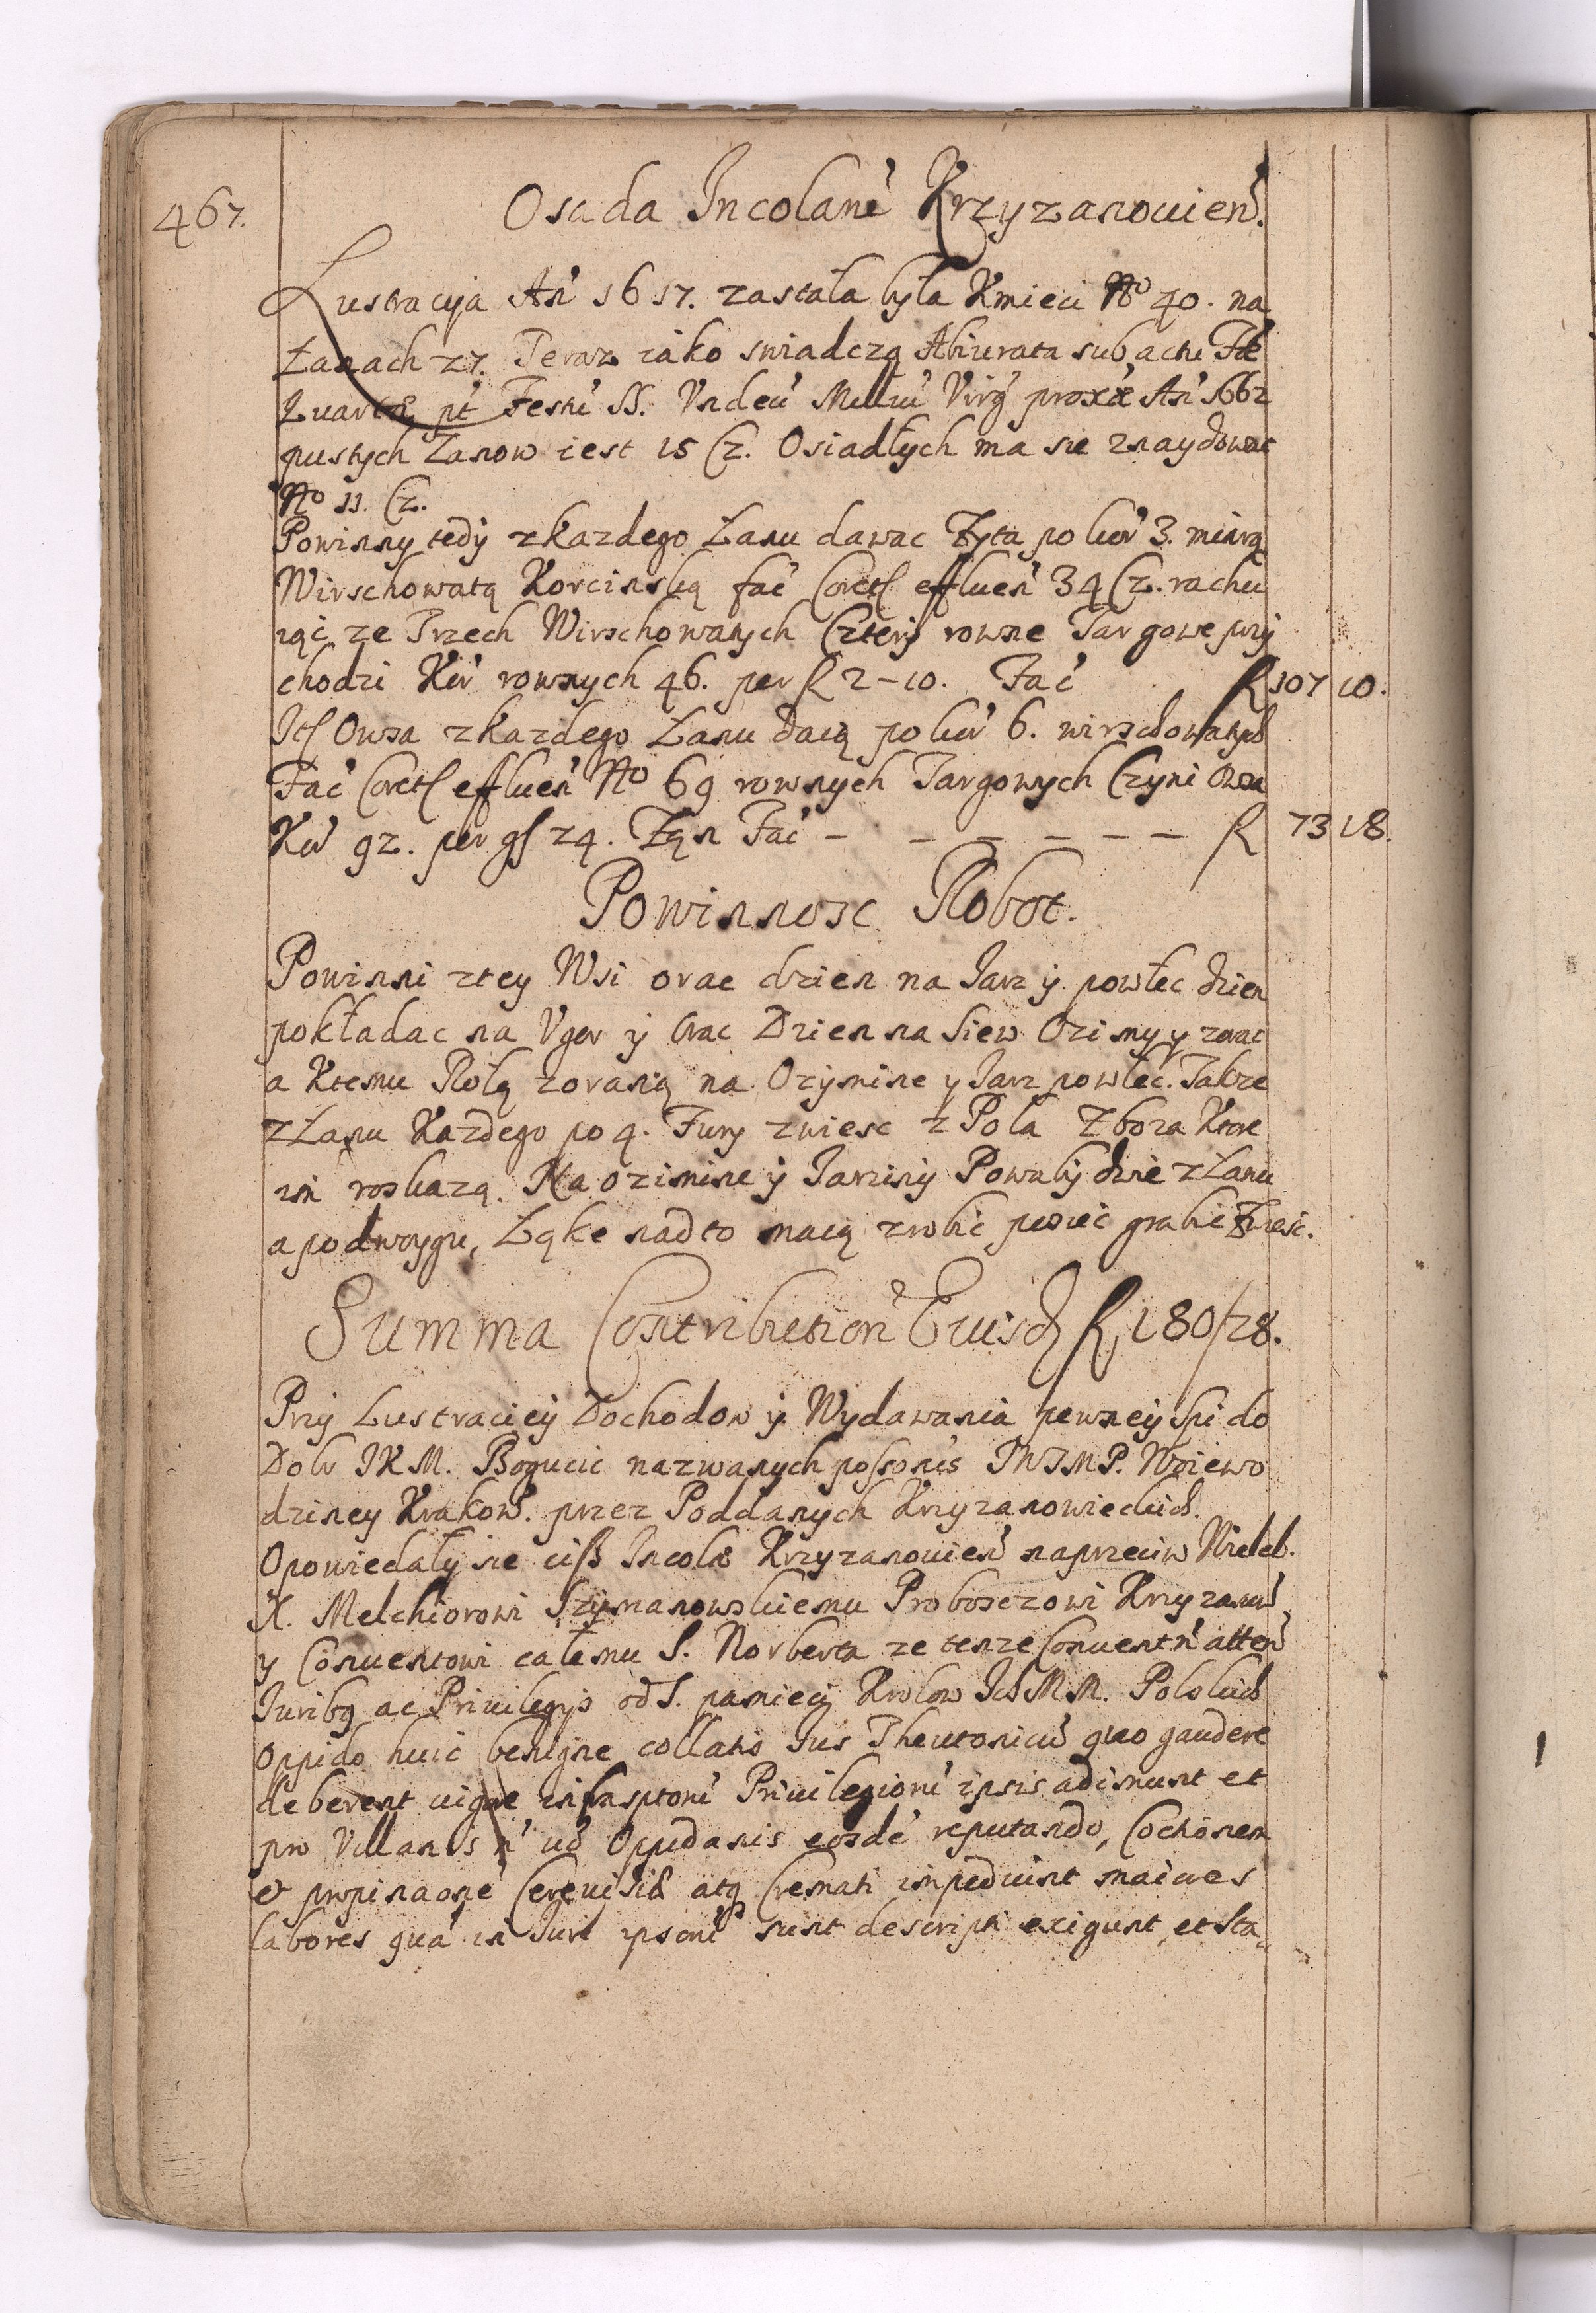 467.
Osada Incolarū Krzyzanouień.
Lustracyja Añ 1617. zastała była Kmieci No 40. na
Łanach 27. Teraz iako swiadczą Abiurata sub actu Fæ
Quarta pt Festū SS. Vndeci Milliu Virg proxe Añ 1662
pustych Łanow iest 15 Cz. Osiadłych ma sie znaydowac
No 11. Cz.
Powinny tedy zkazdego Łanu dawac Zyta po kor 3. miarą
Wirschowatą Korcinską fac Coretſ effluen 34 Cz. rachu
iąc ze Trzech Wirschowatych Cztery rowne Targowe przy
chodzi Kor rownych 46. per fl 2-10. Fac fl 107 10.
Itſ Owsa zkazdego Łanu daią po kor 6. wirschowatych
Fac Coretſ effluen No 69 rownych Targowych Czyni Owsa
Kor 92. per gſ 24. Fac - - - - - - fl 73 18.
Powinnosc Robot.
Powinni ztey Wsi orac dzien na Jarz y powłec dzien
pokładac na Vgor y Orac Dzien na Siew Ozimy y zorac
a Ktemu Rolą zoraną na Ozymine y Jarz powłec. Takze
z Łanu Kazdego po 4. Fury zwiesc z Pola Zboza Ktore
im roskazą. Na ozimine y Jarziny Powaby dwie z Łanu
a podwoygu, Łąke nadto maią zrobic posiec grabic Zwiesc.
Summa Contribution Euisd fl 180/28.
Przy Lustraciey Dochodow y Wydawania pewney Spi do
Dobr JKM. Bogucic nazwanych possonis JWJMP. Woiewo
dziney Krakow. przez Poddanych Krzyzanowieckich.
Opowiedały sie ciż Incolæ Krzyzanouień naprzeciw Wieleb.
X. Melchiorowi Szymanowskiemu Proboszczowi Krzyzanow
y Conuentowi całemu S. Norberta ze tenze Conuent
Juribq ac Priuilegijs od S. pamieci Krolow Ich MM. Polskich
Oppido huic benigne collatis Jus Theutonicū quo gaudere
deberent uigore infrasptorū Priuilegiorū ipsis adimunt et
pro Villanis ñ uo Oppidanis eosdē reputando, Coctionem
et propinaone Cereuisiæ atq Cremati impediunt maiores
labores quā in Jure ipsorū sunt descripti exigunt, et Sta=